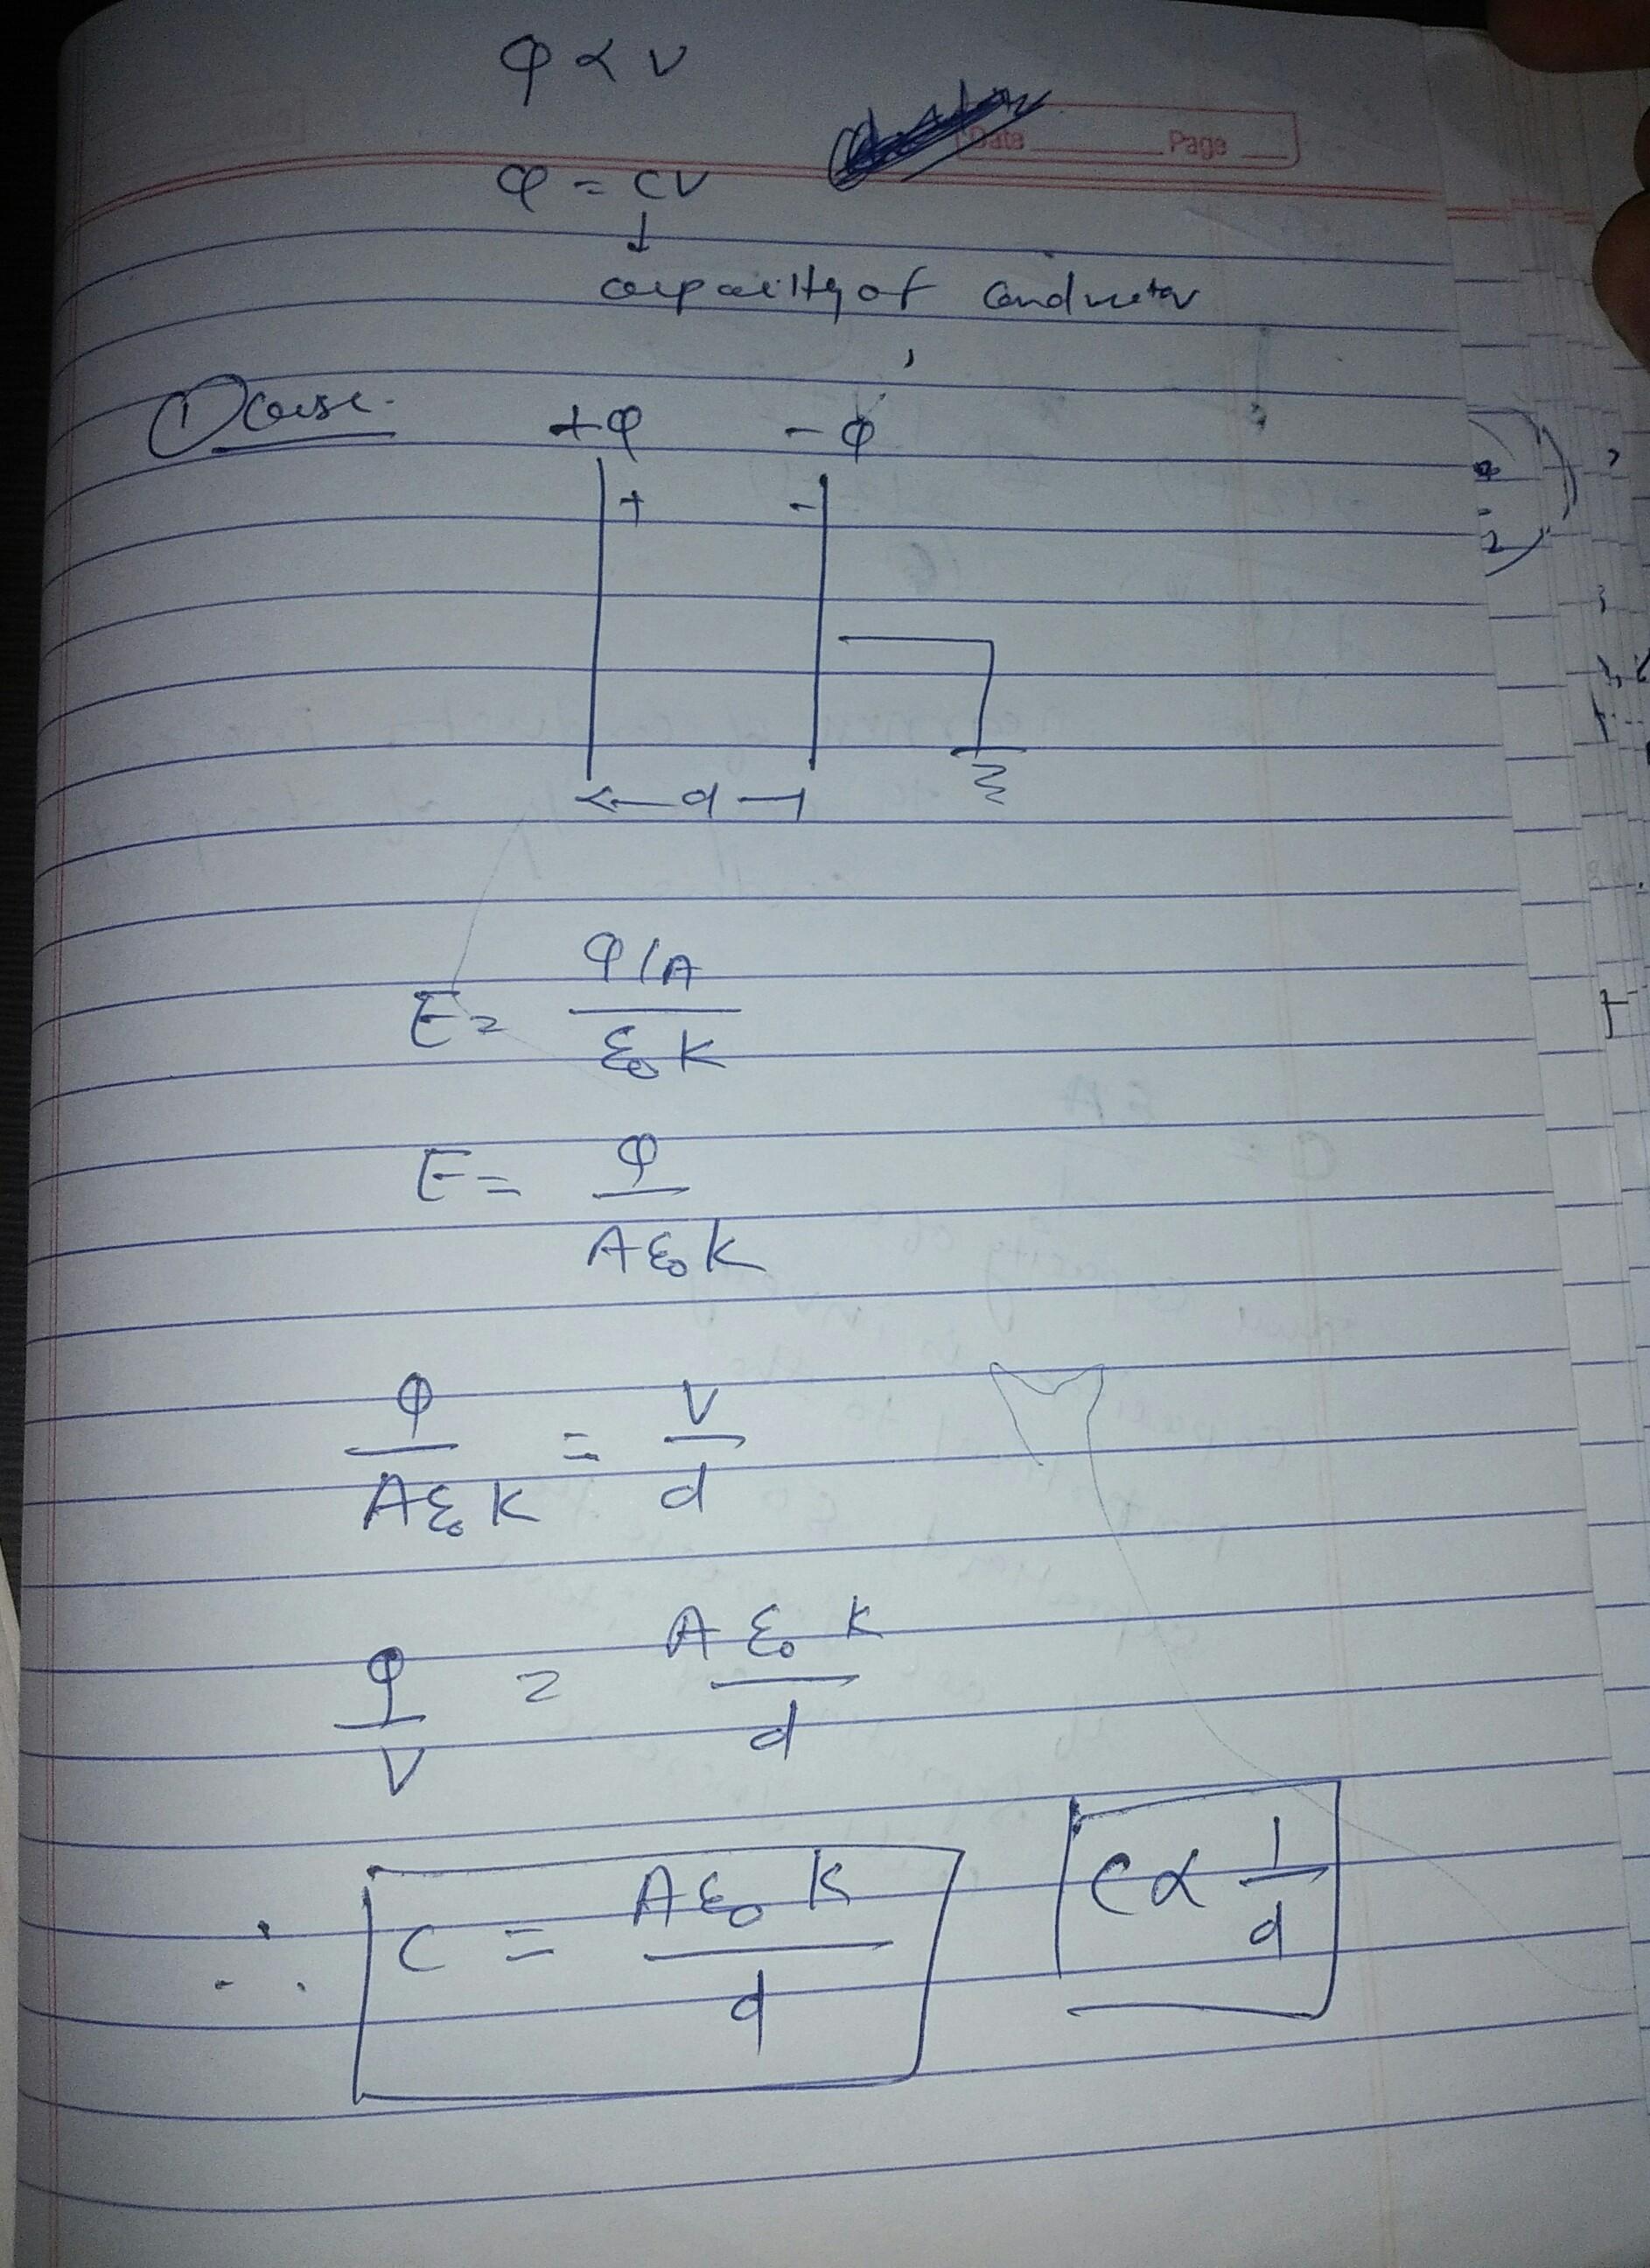 φ ∝ V
Date Page
φ = CV
↓
capacity of conductor
① Case.
+φ - φ
+ -
d
E = φ/A / ε₀ K
E = φ / A ε₀ K
φ / A ε₀ K = V / d
φ / V = A ε₀ K / d
∴ C = A ε₀ K / d C ∝ 1 / d